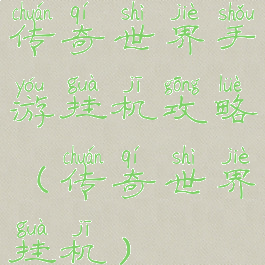 chuán qí shì jiè shǒu
传奇世界手
yóu guà jī gōng lüè
游挂机攻略
chuán qí shì jiè
（传奇世界
guà jī
挂机）